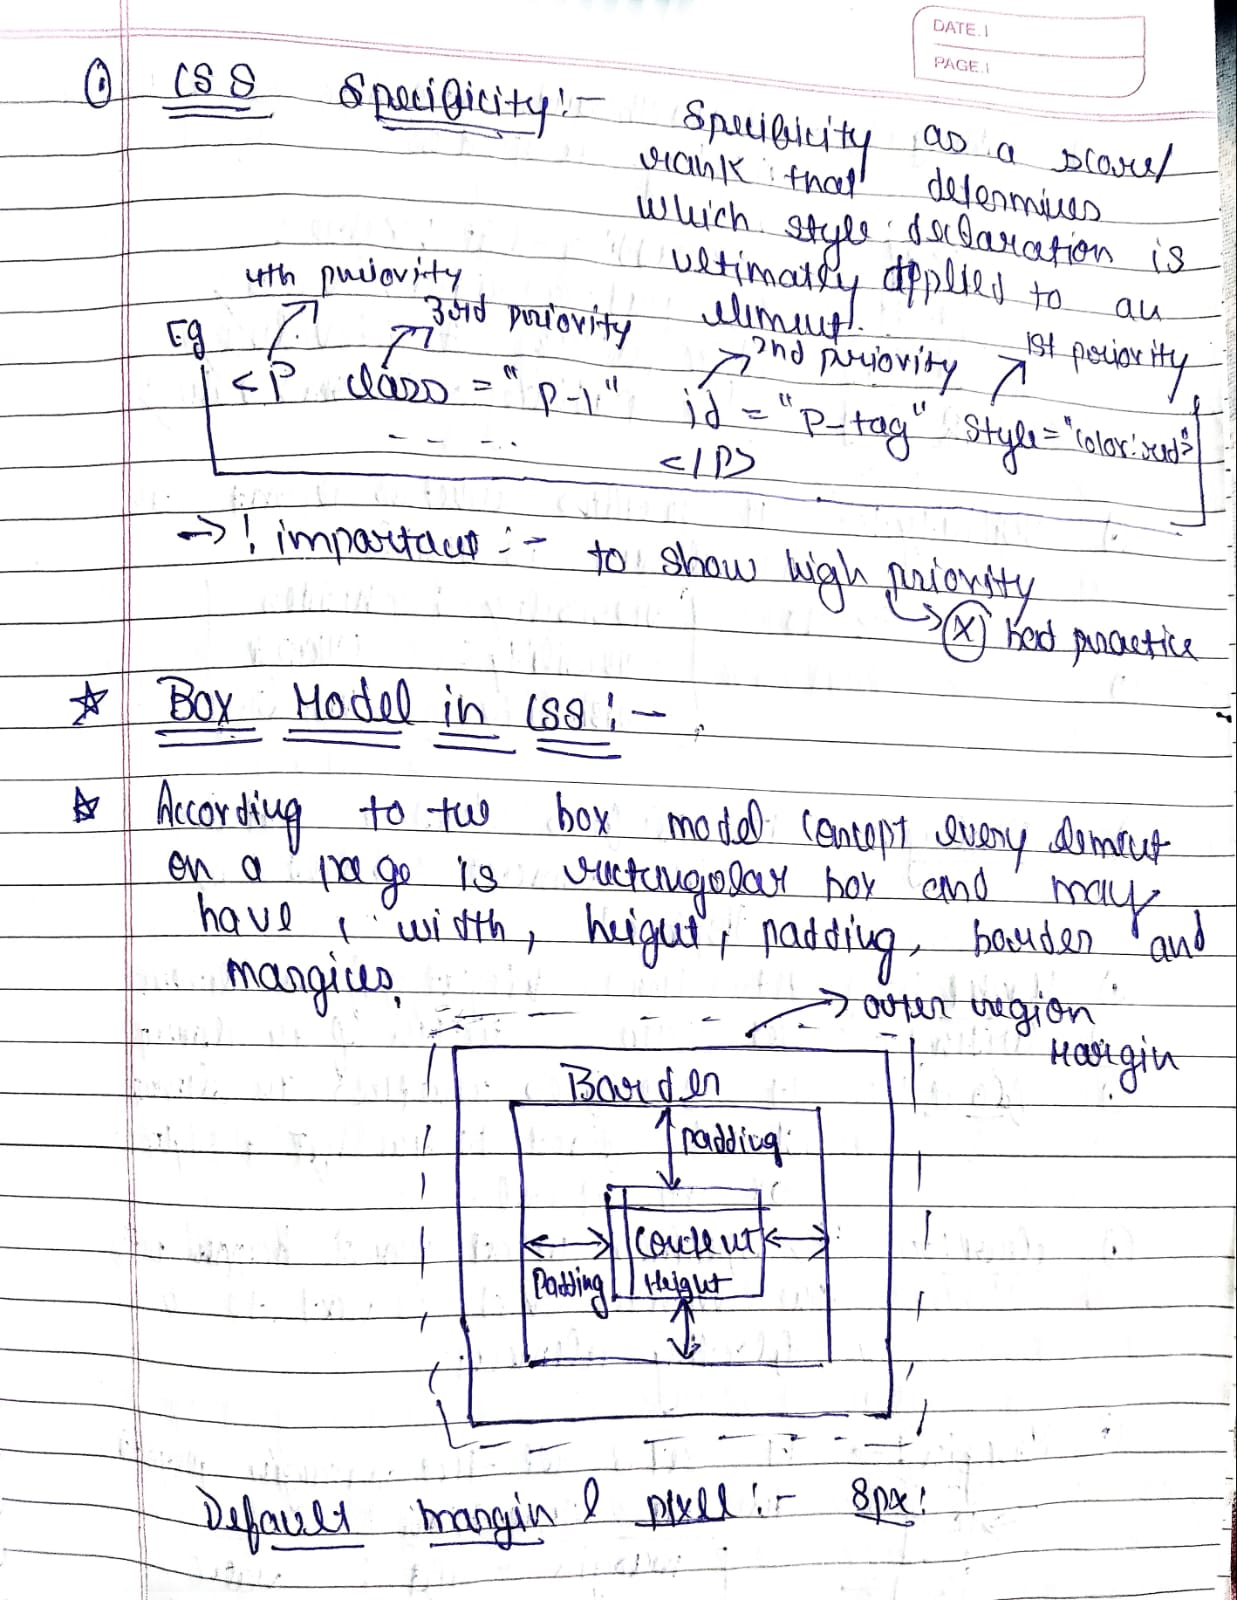 DATE.
PAGE.
① CSS Specificity:- Specificity as a score/
rank that determines
which style declaration is
ultimatly applied to an
element.
4th priority
3rd priority
2nd priority
1st priority
Eg
<P class = "P-1" id = "P-tag" style="color:red">
- - - - -
</P>
→ ! important :- to show high priority
↳ (X) bad practice
☆ Box Model in CSS :-
☆ According to the box model concept every element
on a page is rectangular box and may
have, width, height, padding, border and
margins,
→ outer region
Margin
Border
padding
content
Padding
Height
Default margin & pixel :- 8px: